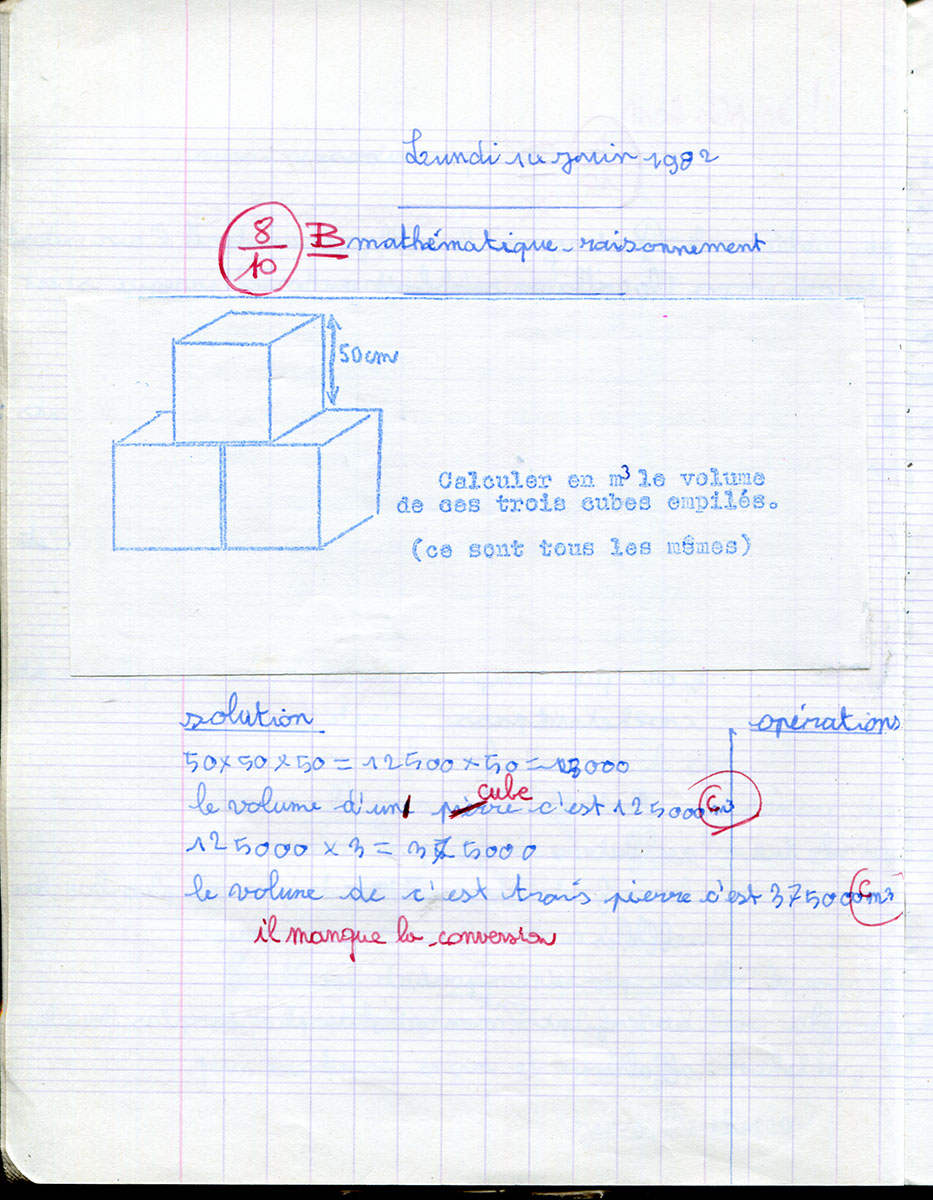 Lundi 14 juin 1982
8/10 B mathématique-raisonnement
50cm
Calculer en m³ le volume
de ces trois cubes empilés.
(ce sont tous les mêmes)
solution
opérations
50×50×50=12500×50=
cube
le volume d'un pierre c'est 125000 cm³
125000 × 3 = 375000
le volune de c'est trois pierre c'est 375000 cm³
il manque la conversion